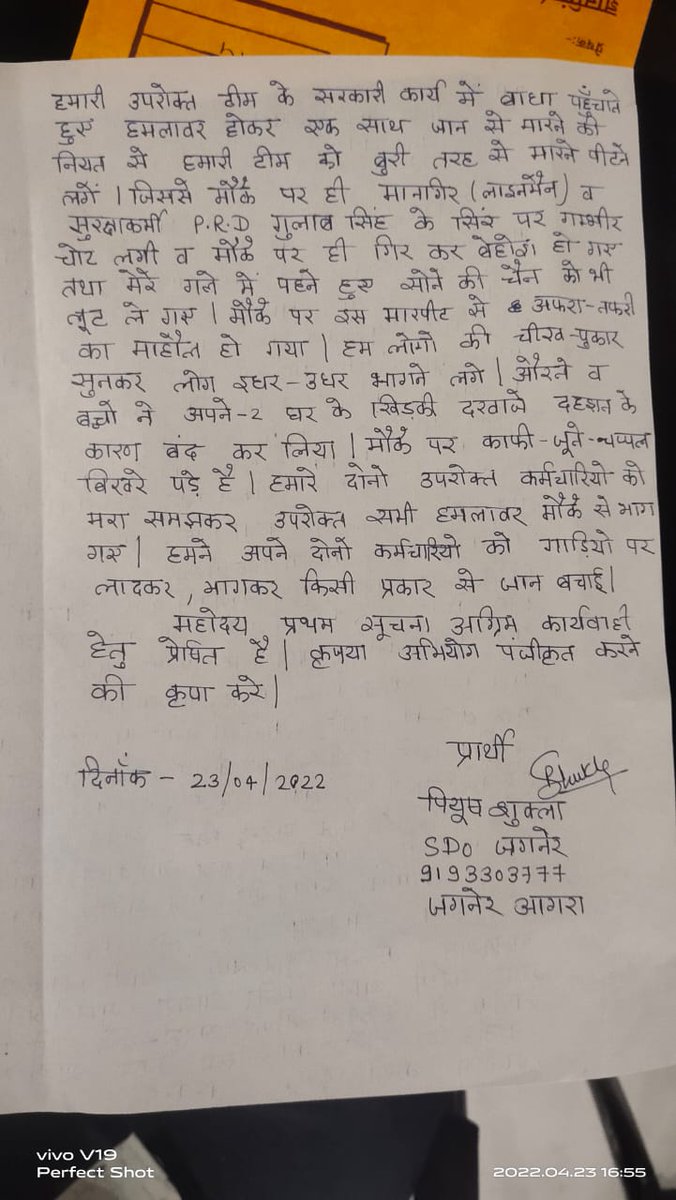 हमारी उपरोक्त टीम के सरकारी कार्य में बाधा पहुँचाते
हुए हमलावर होकर एक साथ जान से मारने की
नियत से हमारी टीम को बुरी तरह से मारने पीटने
लगें । जिससे मौके पर ही मानगिर (लाइनमैन) व
सुरक्षाकर्मी P.R.D गुलाब सिंह के सिर पर गम्भीर
चोट लगी व मौके पर ही गिर कर बेहोश हो गए
तथा मेरे गले में पहने हुए सोने की चैन को भी
लूट ले गए । मौके पर इस मारपीट से अफरा-तफरी
का माहौल हो गया । हम लोगो की चीख-पुकार
सुनकर लोग इधर-उधर भागने लगे । औरते व
बच्चो ने अपने-2 घर के खिड़की दरवाजे दहशत के
कारण बंद कर लिया । मौके पर काफी-जूते-चप्पल
बिखरे पड़े है । हमारे दोनो उपरोक्त कर्मचारियो को
मरा समझकर उपरोक्त सभी हमलावर मौके से भाग
गए । हमने अपने दोनो कर्मचारियो को गाडियो पर
लादकर, भागकर किसी प्रकार से जान बचाई ।
महोदय प्रथम सूचना अग्रिम कार्यवाही
हेतु प्रेषित है । कृपया अभियोग पंजीकृत करने
की कृपा करे ।
प्रार्थी
दिनाँक - 23/04/2022
पियूष शुक्ला
SDO जगनेर
9193303777
जगनेर आगरा
vivo V19
Perfect Shot
2022.04.23 16:55